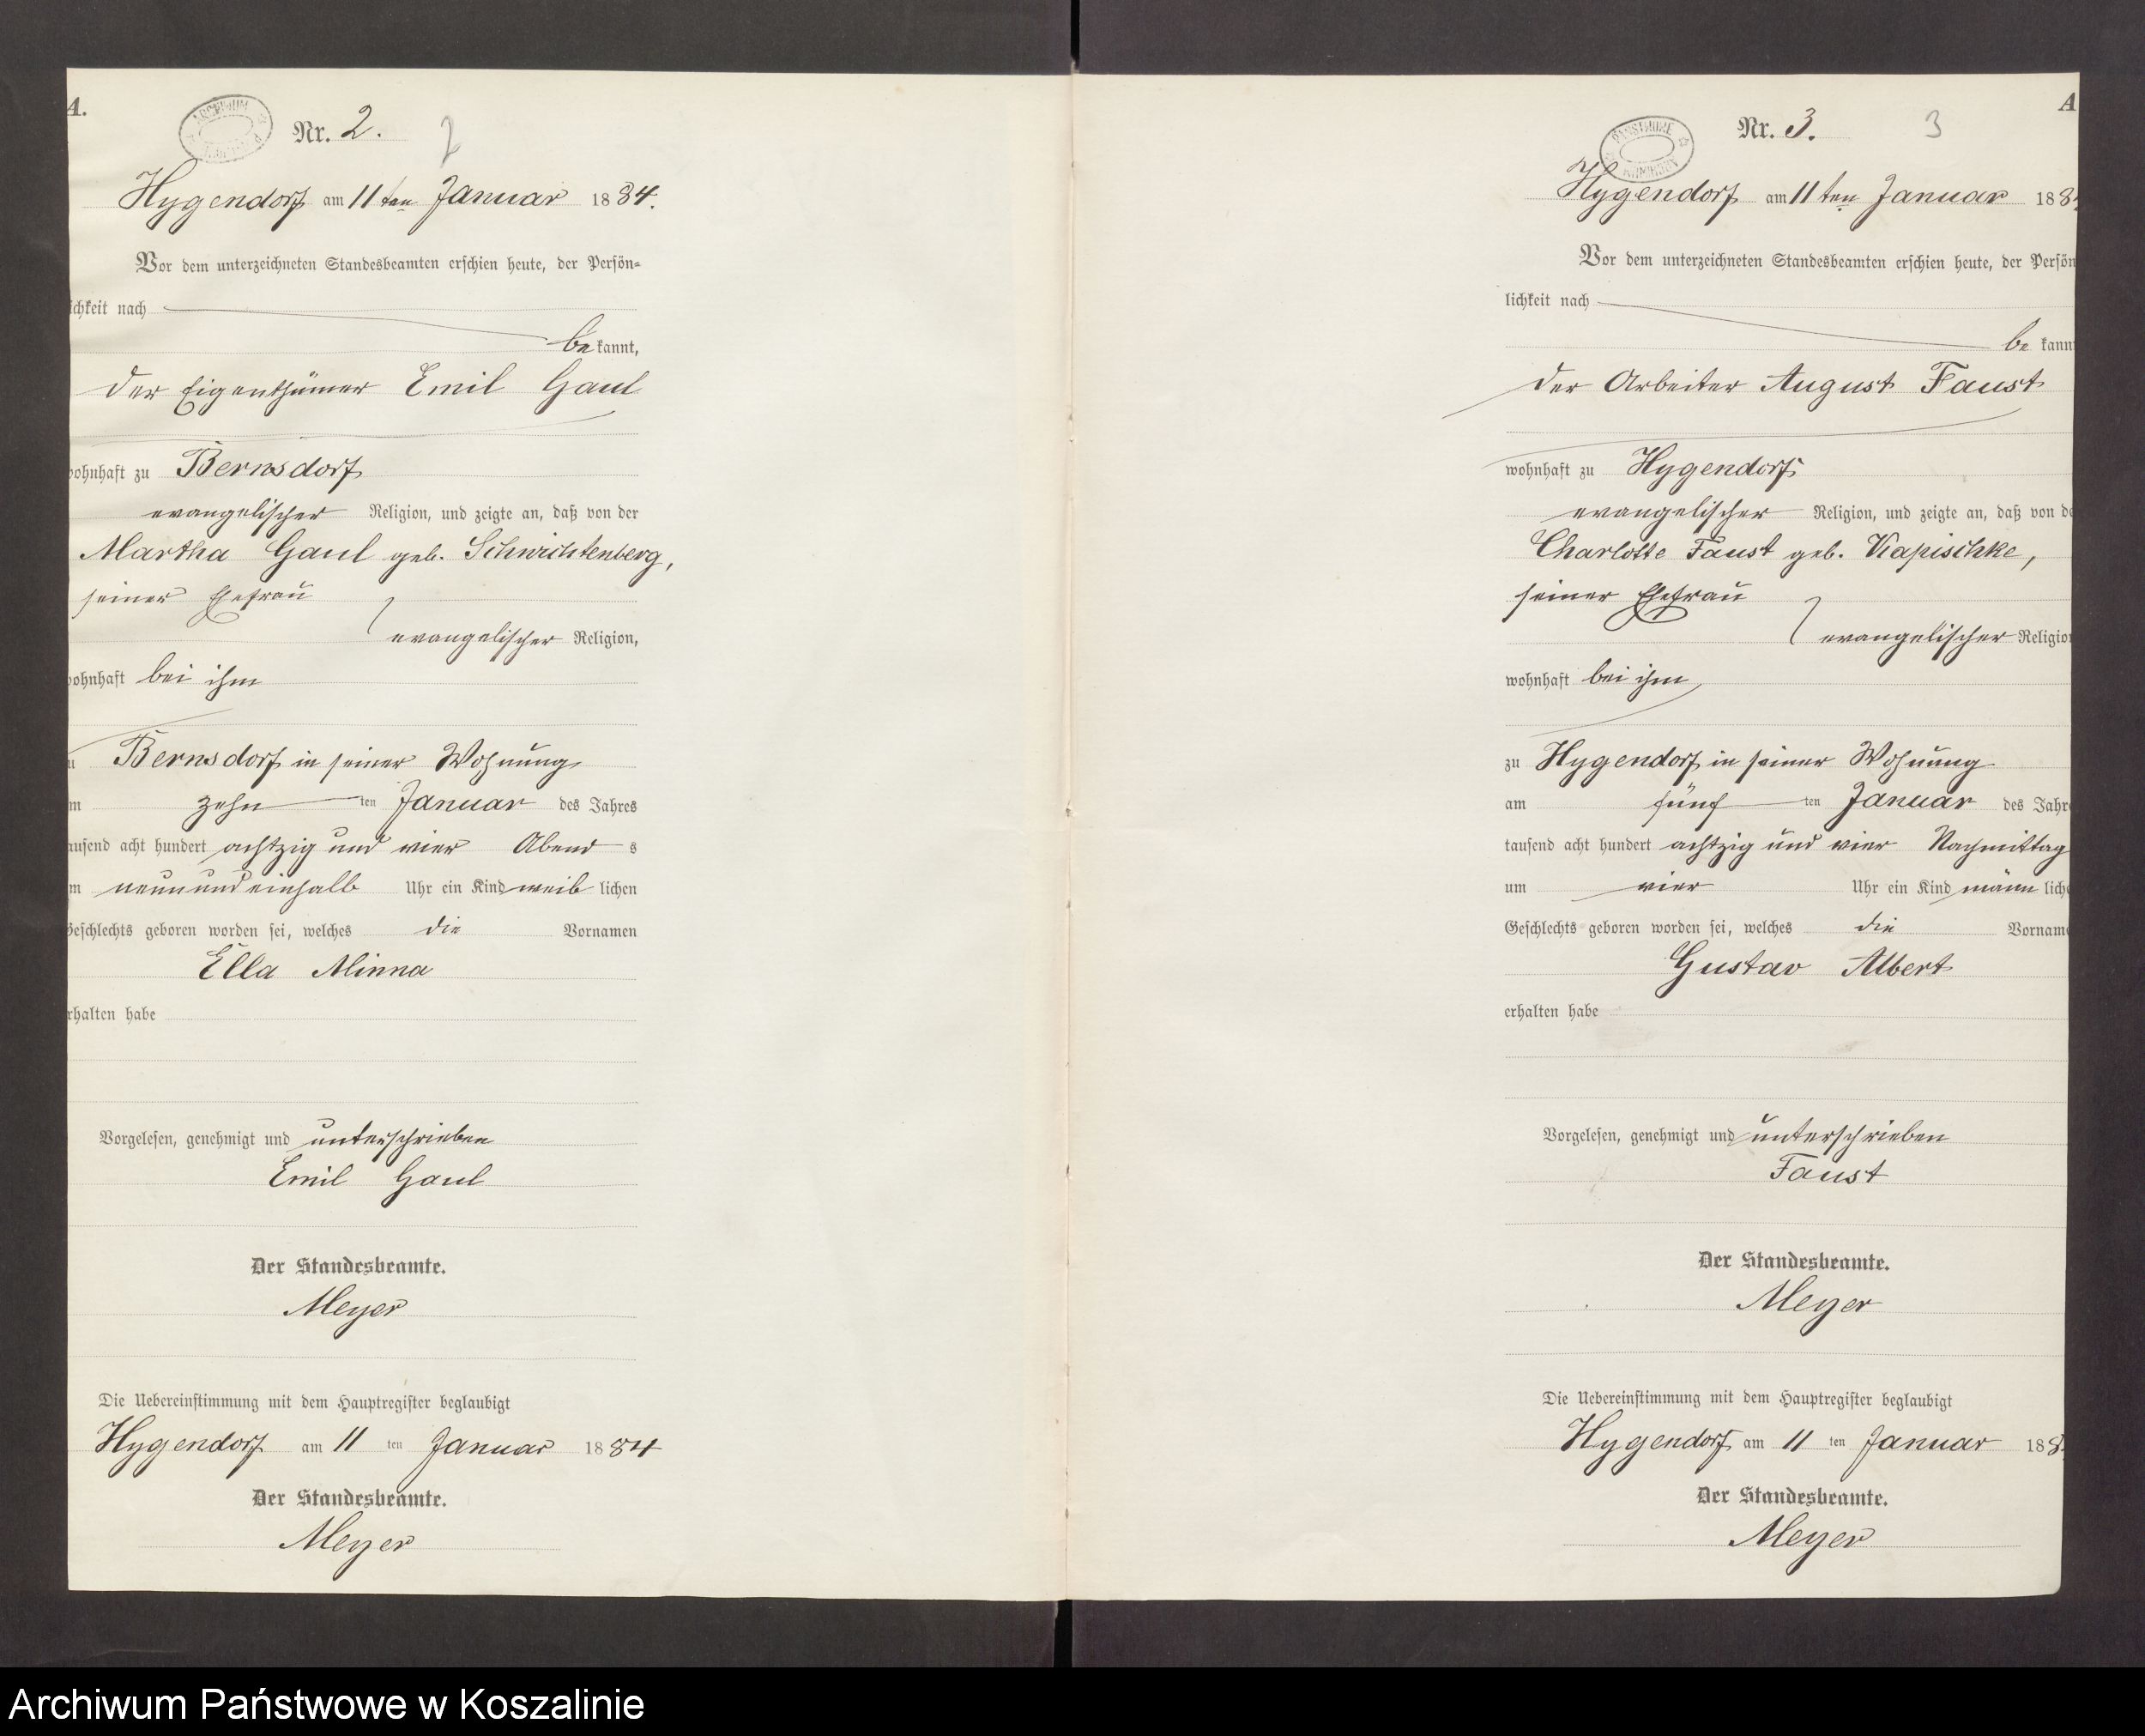 A.
Nr. 2. 2
Hygendorf am 11ten Januar 1884.
Vor dem unterzeichneten Standesbeamten erschien heute, der Persön-
ichkeit nach
be kannt,
der Eigenthümer Emil Gaul
wohnhaft zu Bernsdorf
evangelischer Religion, und zeigte an, daß von der
Martha Gaul geb. Schwichtenberg,
seiner Ehefrau
evangelischer Religion,
wohnhaft bei ihm
u Bernsdorf in seiner Wohnung
m zehn ten Januar des Jahres
ausend acht hundert achtzig und vier Abend s
m neun und einhalb Uhr ein Kind weib lichen
Geschlechts geboren worden sei, welches die Vornamen
Ella Minna
rhalten habe
Vorgelesen, genehmigt und unterschrieben
Emil Gaul
Der Standesbeamte.
Meyer
Die Uebereinstimmung mit dem Hauptregister beglaubigt
Hygendorf am 11 ten Januar 1884
Der Standesbeamte.
Meyer
A
Nr. 3. 3
Hygendorf am 11ten Januar 188
Vor dem unterzeichneten Standesbeamten erschien heute, der Persön
lichkeit nach
be kann
der Arbeiter August Faust
wohnhaft zu Hygendorf
evangelischer Religion, und zeigte an, daß von de
Charlotte Faust geb. Kapischke,
seiner Ehefrau
evangelischer Religion
wohnhaft bei ihm
zu Hygendorf in seiner Wohnung
am fünf ten Januar des Jahre
tausend acht hundert achtzig und vier Nachmittag
um vier Uhr ein Kind männ liche
Geschlechts geboren worden sei, welches die Vorname
Gustav Albert
erhalten habe
Vorgelesen, genehmigt und unterschrieben
Faust
Der Standesbeamte.
Meyer
Die Uebereinstimmung mit dem Hauptregister beglaubigt
Hygendorf am 11 ten Januar 188
Der Standesbeamte.
Meyer
Archiwum Państwowe w Koszalinie